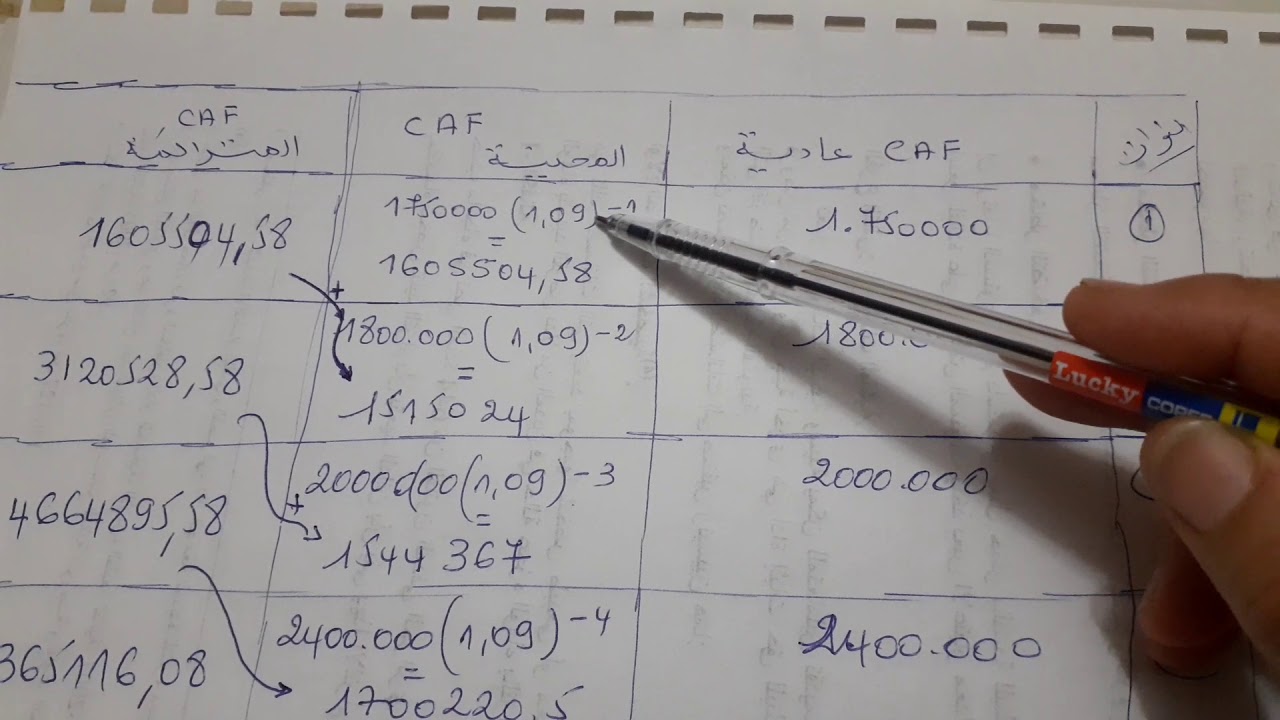 سنوات
CAF عادية
CAF
المحينة
CAF
المتراكمة
1
1.750000
1750000 (1,09)-1
=
1605504,58
1605504,58
+
1800.000 (1,09)-2
=
1515024
3120528,58
2000.000
2000000(1,09)-3
=
1544367
+
4664895,58
2400.000
2400.000(1,09)-4
=
1700220,5
365116,08
Lucky